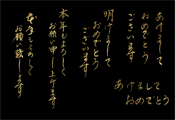 あけまして
おめでとう
ございます
明けまして
おめでとう
ございます
本年もよろしく
お願い申し上げます
本年もよろしく
お願い致します
あけまして
おめでとう